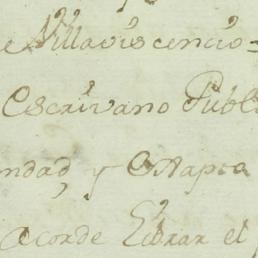 e Villaviscencio =
Escrivano Publ
ndad, y
acorde Librar el p